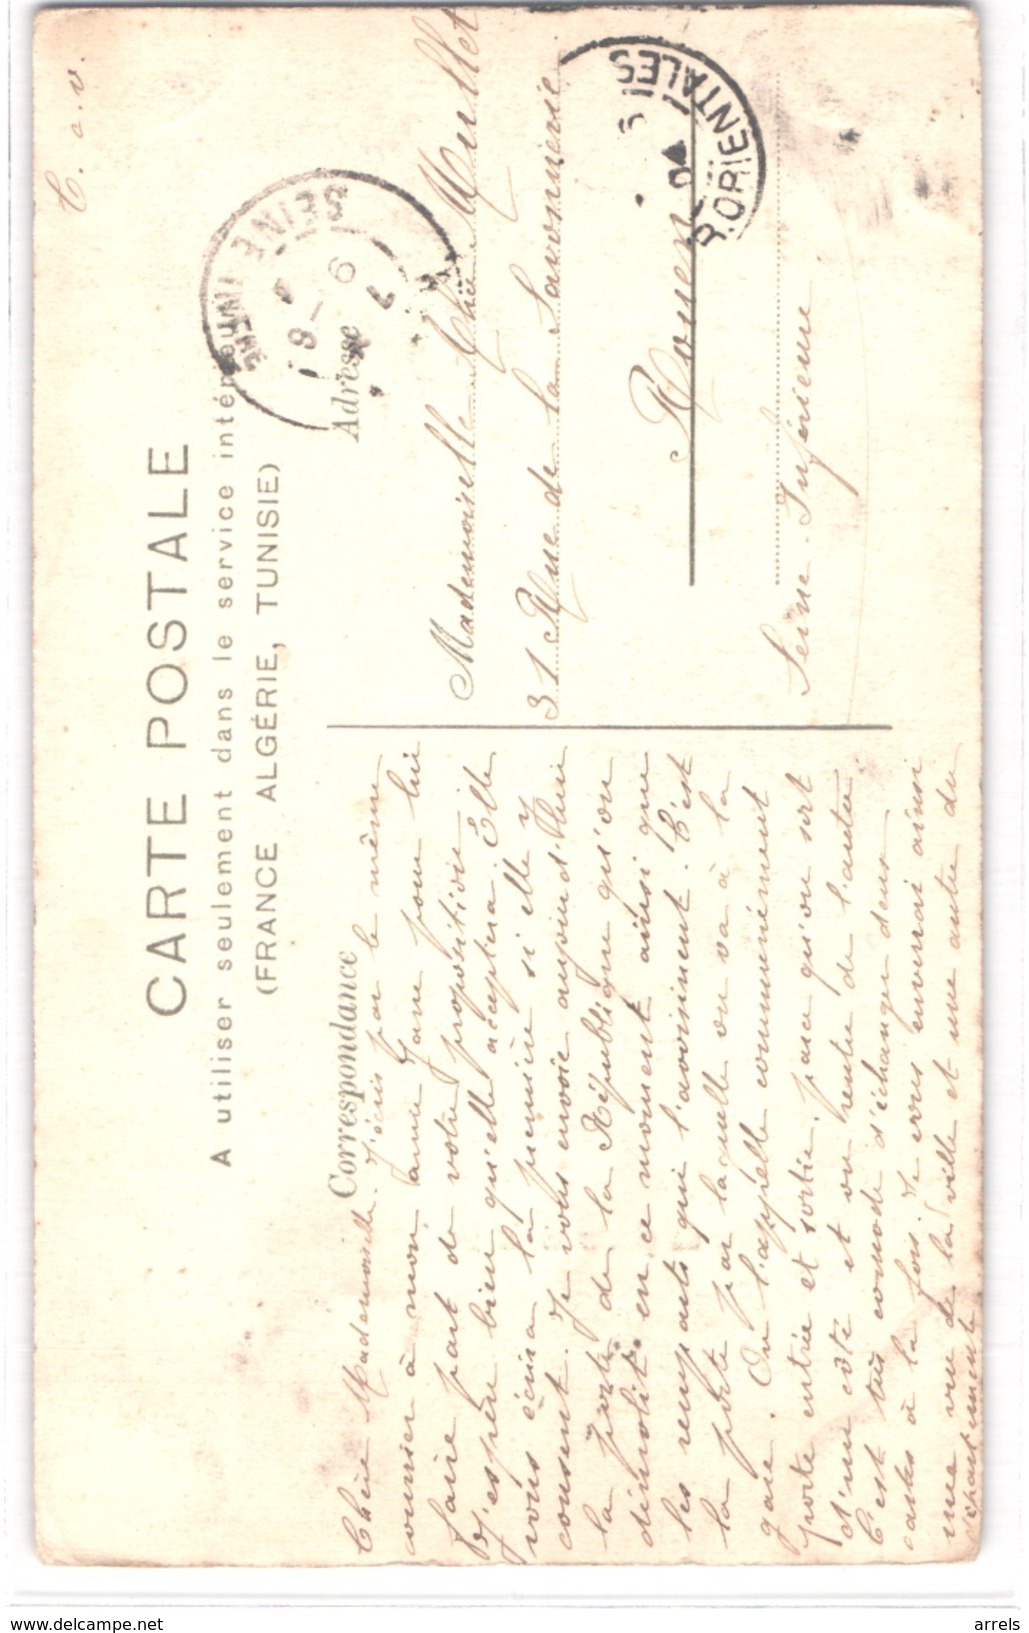 C. a. v.
CARTE POSTALE
A utiliser seulement dans le service intérieur
(FRANCE ALGÉRIE, TUNISIE)
Correspondance
Chère Mademoiselle J'écris par le même
courrier à mon amie pour lui
faire part de votre proposition
J'espère bien qu'elle acceptera Elle
vous écrira la première si elle y
consent. Je vous envoie aujourd'hui
la porte de la République qu'on
démolit en ce moment ainsi que
les remparts qui l'avoisinent. C'est
la porte par laquelle on va à la
gare. On l'appelle communément
porte entrée et sortie, parce qu'on sort
d'un côté et on rentre de l'autre
C'est très commode d'échanger deux
cartes à la fois. Je vous enverrai ainsi
une vue de la ville et une autre du
département
Adresse
SEINE INFRE
7
9 - 6
Mademoiselle Mullet
31 Rue de la Savonnerie
Rouen
Seine Inférieure
P. ORIENTALES
04
delcampe.net
arrels